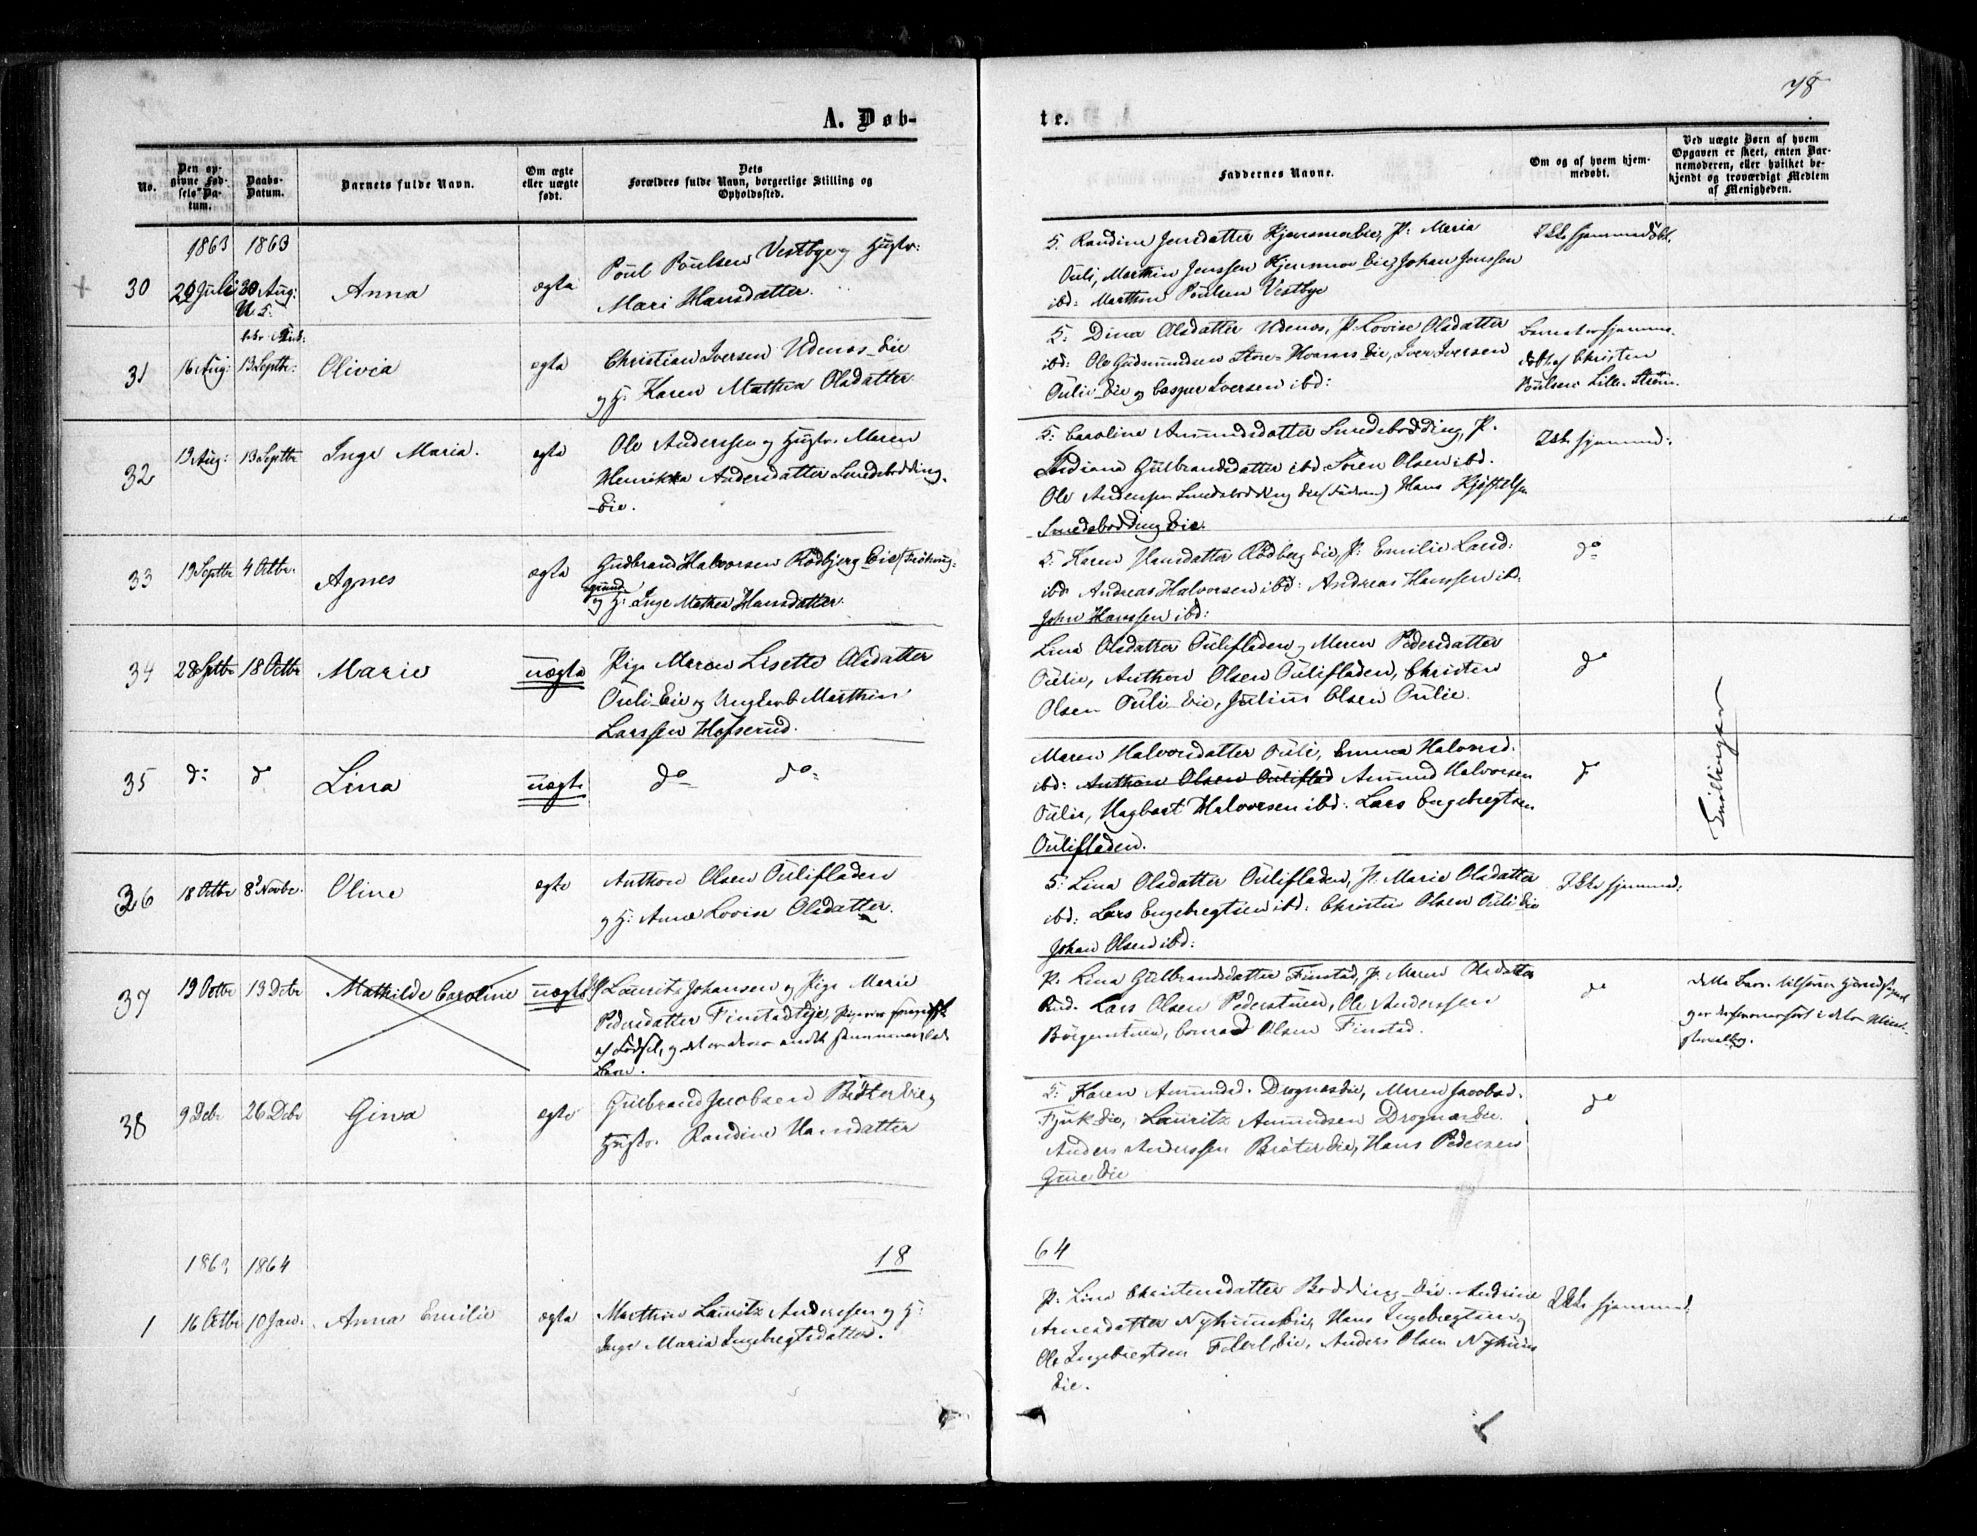 78
A. Døb-
te.
No.
Den op-
givne Fød-
sels-Da-
tum.
Daabs-
Datum.
Barnets fulde Navn.
Om ægte
eller uægte
født.
Dets
Forældres fulde Navn, borgerlige Stilling og
Opholdssted.
Faddernes Navne.
Om og af hvem hjem-
medøbt.
Ved uægte Børn af hvem
Opgaven er skeet, enten Bar-
nemoderen, eller hvilket be-
kjendt og troværdigt Medlem
af Menigheden.
1863 1863
30 20 Juli 30 Aug: Anna ægte
Poul Poulsen Vestbye og Hustr:
Mari Hansdatter.
5. Randine Jensdatter Kjensmoe Eie, P: Maria
Ouli, Marthin Jenssen Kjensmoe Eie, Johan Jenssen
ibd: Marthin Poulsen Vestbye
Ikke hjemmedøbt.
31 16 Aug: 13 Septbr: Olivia egte
Christian Iversen Udenes Eie
og H: Karen Mathea Olsdatter
5: Dina Olsdatter Udenes, P: Lovise Olsdatter
ibd: Ole Gudmundsen Store-Hvams Eie, Iver Iversen
Oulie Eie og Casper Iversen ibd:
Barnet er hjemme-
døbt af Christen
Poulsen Lille-Strøm.
32 19 Aug: 13 Septbr Inge Maria. egte
Ole Anderssen og Hustr. Maren
Henrikka Andersdatter Smedsbodding
Eie.
5: Caroline Amundsdatter Smedsbodding, P.
Indiana Gulbrandsdatter ibd. Søren Olsen ibd.
Ole Anderssen Smedsbodding Eie (Faderen) Hans Kjøstelsen
Smedsbodding Eie.
Ikke hjemmed:
33 19 Septbr 4 Octbr. Agnes ægte
Gudbrand Halvorsen Rødbjerg Eie
og H: Inge Mathea Hansdatter.
5: Karen Hansdatter Rødberg Eie, P: Emilie Larsd:
ibd. Andreas Halvorsen ibd: Andreas Hanssen ib.
John Hanssen ibd:
do
34 28 Sptbr 18 Octbr Marie uægte
Pige Maren Lisette Olsdatter
Ouli-Eie og Ungkarl Marthin
Larssen Hofserud.
Lina Olsdatter Oulifladen og Maren Pedersdatter
Oulie, Anthon Olsen Oulifladen, Christen
Olsen Ouli-Eie, Julius Olsen Oulie.
do
35 do do Lina uægte
do do
Maren Halvorsdatter Ouli, Emma Halvorsd.
ibd: Anthon Olsen Ouliflad Amund Halvorsen
Oulie, Hagbart Halvorsen ibd: Lars Engebregtsen
Oulifladen.
do
Tvillinger
36 18 Octbr 8de Novbr. Oline egte
Anthon Olsen Oulifladen
og H: Anne Lovise Olsdatter.
5: Lina Olsdatter Oulifladen, P: Marie Olsdatter
ibd: Lars Engebregtsen ibd: Christen Olsen Ouli Eie
Johan Olsen ibd:
Ikke hjemmed:
37 19 Octbr 13 Decbr Mathilde Caroline uægte
Lauritz Johansen og Pige Marie
Pedersdatter Finstadeje,
af Fødsel, og det er deres andet sammenavlede
Barn.
P. Lina Gulbrandsdatter Finstad, P. Maren Olsdatter
Rud. Lars Olsen Pederstuen, Ole Anderssen
Børgerstuen, Conrad Olsen Finstad.
do
dette Barn tilhører
38 9 Decbr 26 Decbr Gina egte
Gulbrand Jacobsen Brøter Eie og
Hustr. Randine Hansdatter
5: Karen Amundsd. Drognes Eie, Maren Jacobsd.
Fjuk-Eie, Lauritz Amundsen Drognes Eie.
Anders Anderssen Brøter Eie, Hans Pedersen
Eie
do
18
64
1863 1864
1 16 Octbr 10 Jan. Anna Emilie ægte
Marthin Lauritz Anderssen og H:
Inge Maria Ingebregtsdatter.
P. Lina Christensdatter Bodding Eie. Andrine
Arnesdatter Nyhuus Eie, Hans Ingebregtsen,
Ole Ingebregtsen Eie, Anders Olsen Nyhuus
Eie.
Ikke hjemmed.